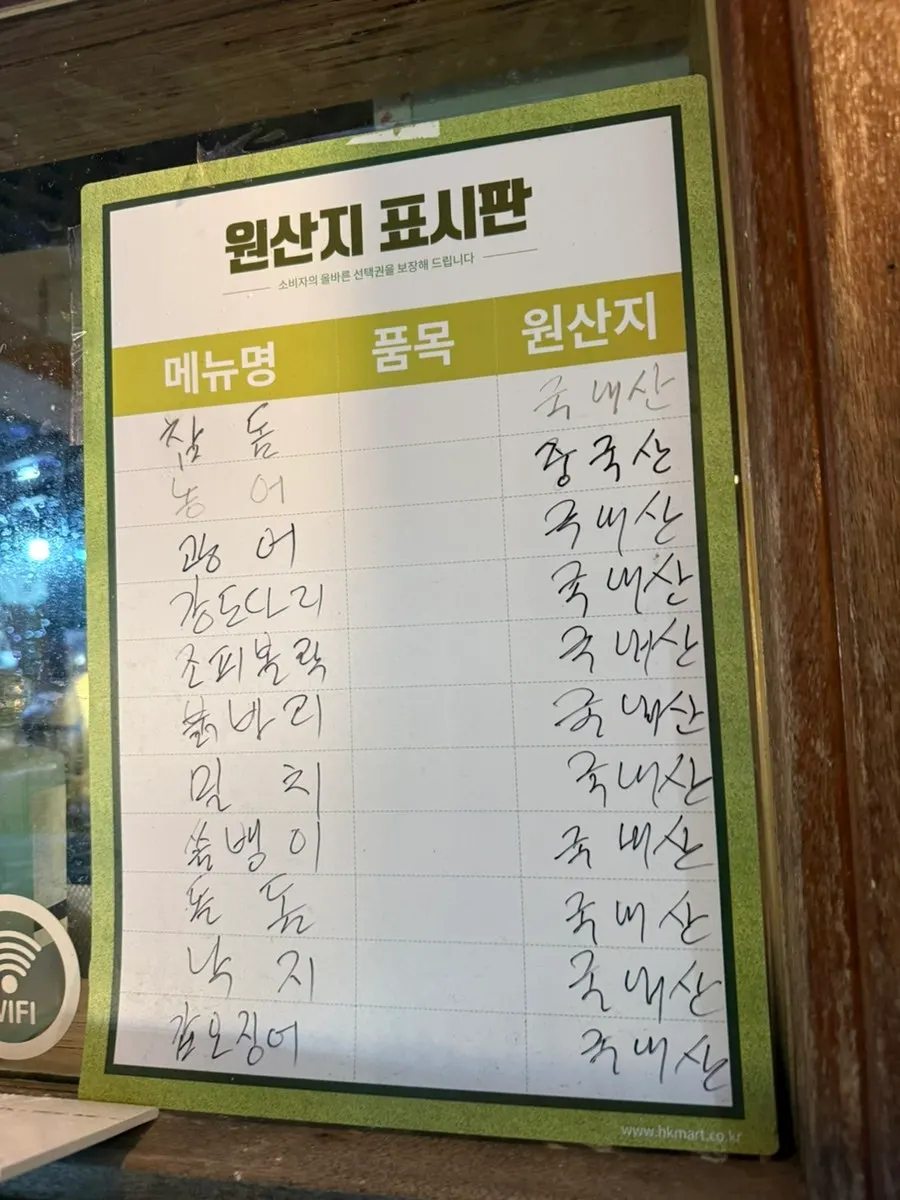 원산지 표시판
소비자의 올바른 선택권을 보장해 드립니다
메뉴명 품목 원산지
참돔 국내산
농어 중국산
광어 국내산
강도다리 국내산
조피볼락 국내산
붉바리 국내산
밀치 국내산
쏨뱅이 국내산
돌돔 국내산
낙지 국내산
갑오징어 국내산
WIFI
www.hkmart.co.kr